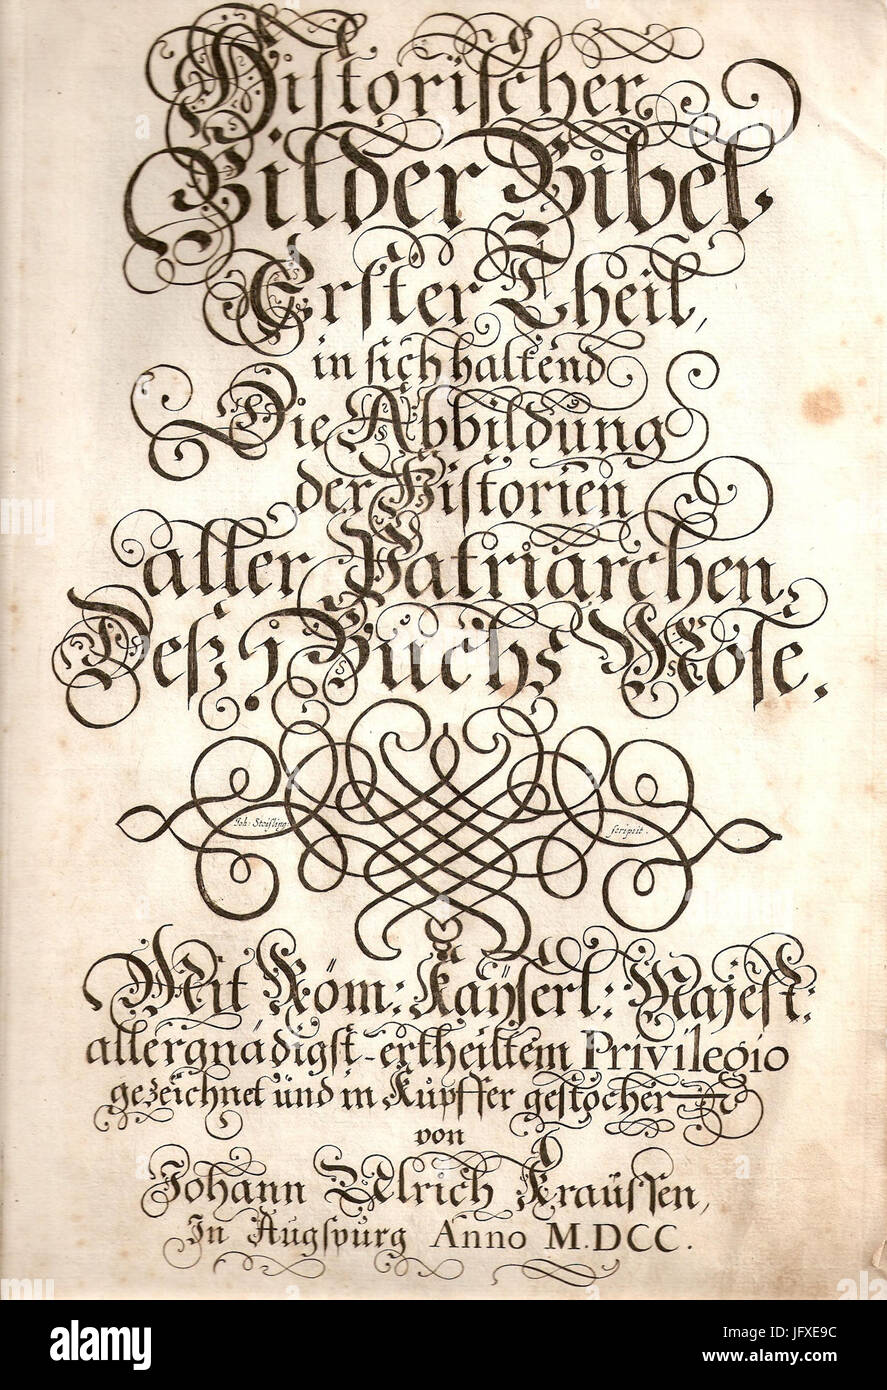 Historischer
Bilder Bibel.
Erster Theil,
in sich haltend
Die Abbildung
der Historien
aller Patriarchen
Deß j Buchs Mose.
Joh: Steißling: scripsit.
Mit Röm: Kaÿserl: Majest:
allergnädigst-ertheiltem Privilegio
gezeichnet und in Kupffer gestochen
von
Johann Ulrich Kraussen,
In Augspurg Anno M.DCC.
alamy
Image ID: JFXE9C
www.alamy.com